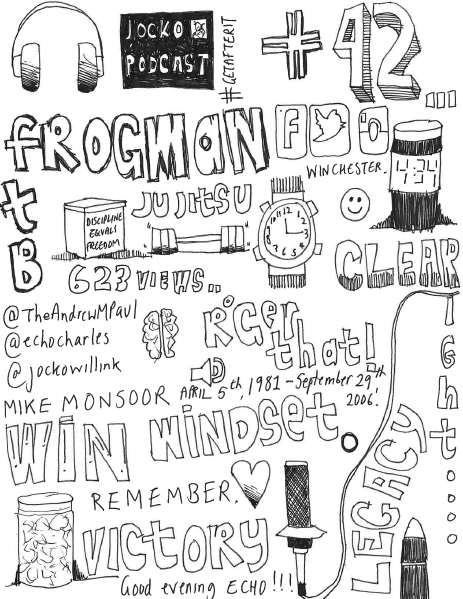 JOCKO
PODCAST
#GETAFTERIT
+ 42...
FROGMAN
WINCHESTER.
4:34
ftB
DISCIPLINE
EQUALS
FREEDOM
JUJITSU
12 1 2 3 4 5 6 7 8 9 10 11
CLEAR
623 VIEWS..
@TheAndrewMPaul
@echocharles
@jockowillink
ROGER
that!
MIKE MONSOOR APRIL 5th, 1981 – September 29th
2006!
WIN MINDSET.
Light....
LEGACY
REMEMBER.
VICTORY
Good evening ECHO!!!